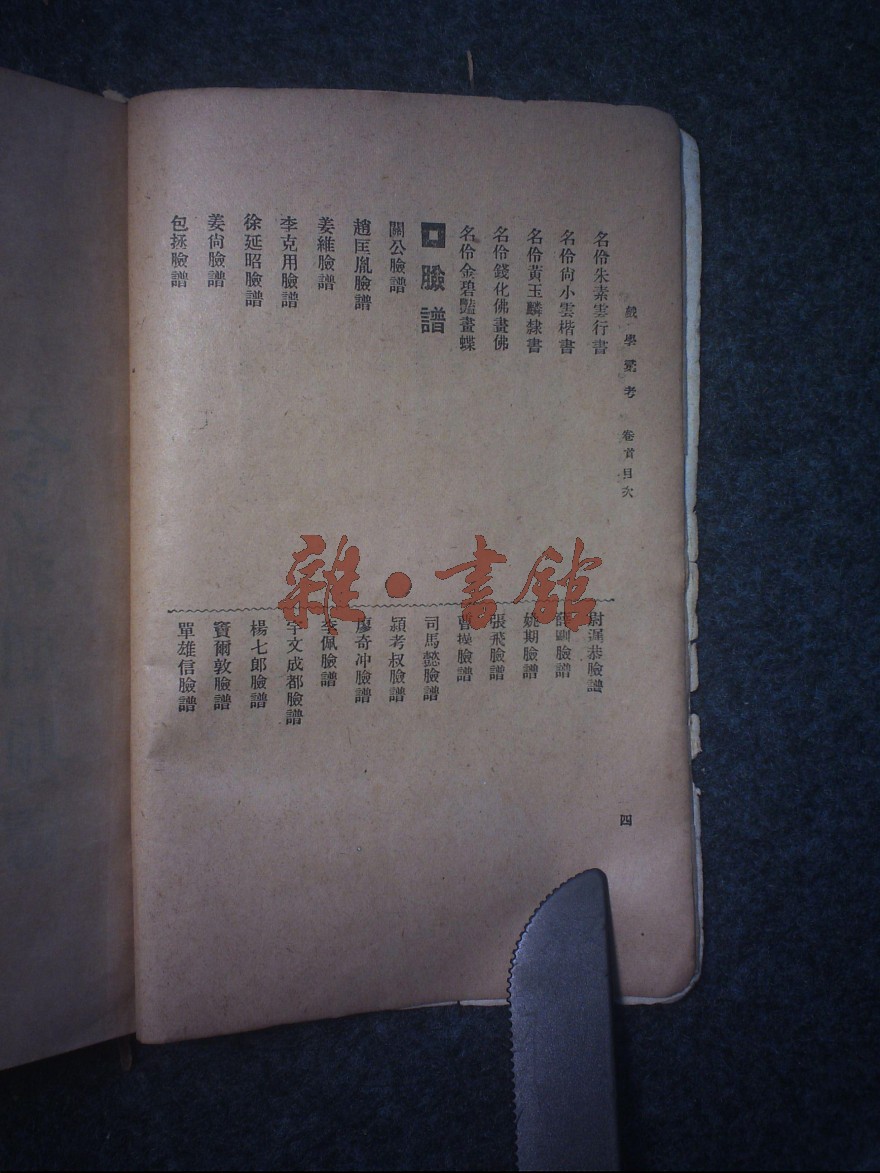 戲學彙考　卷首目次
四
名伶朱素雲行書
名伶尙小雲楷書
名伶黃玉麟隸書
名伶錢化佛畫佛
名伶金碧豔畫蝶
臉譜
關公臉譜
趙匡胤臉譜
姜維臉譜
李克用臉譜
徐延昭臉譜
姜尙臉譜
包拯臉譜
尉遲恭臉譜
臉譜
姚期臉譜
張飛臉譜
曹操臉譜
司馬懿臉譜
潁考叔臉譜
廖奇冲臉譜
李佩臉譜
宇文成都臉譜
楊七郎臉譜
竇爾敦臉譜
單雄信臉譜
雜·書館